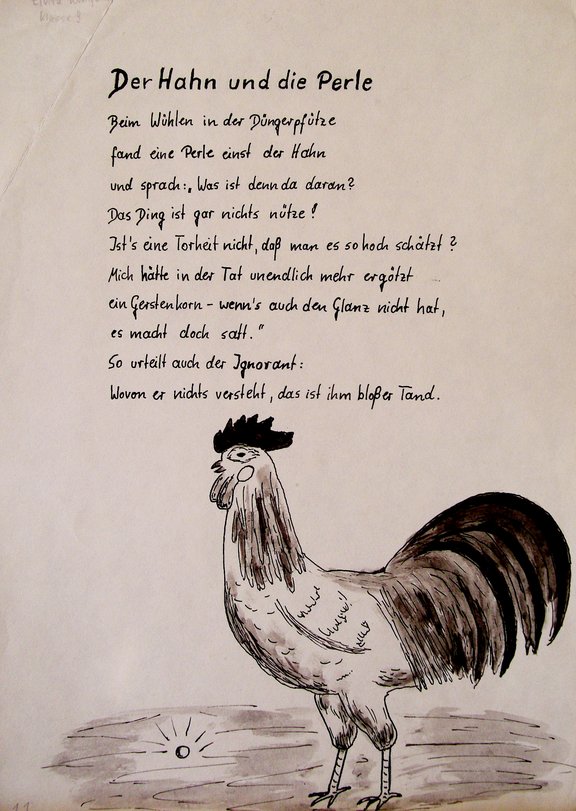 Klasse 9
Der Hahn und die Perle
Beim Wühlen in der Düngerpfütze
fand eine Perle einst der Hahn
und sprach: „Was ist denn da daran?
Das Ding ist gar nichts nütze!
Ist's eine Torheit nicht, daß man es so hoch schätzt?
Mich hätte in der Tat unendlich mehr ergötzt
ein Gerstenkorn - wenn's auch den Glanz nicht hat,
es macht doch satt."
So urteilt auch der Ignorant:
Wovon er nichts versteht, das ist ihm bloßer Tand.